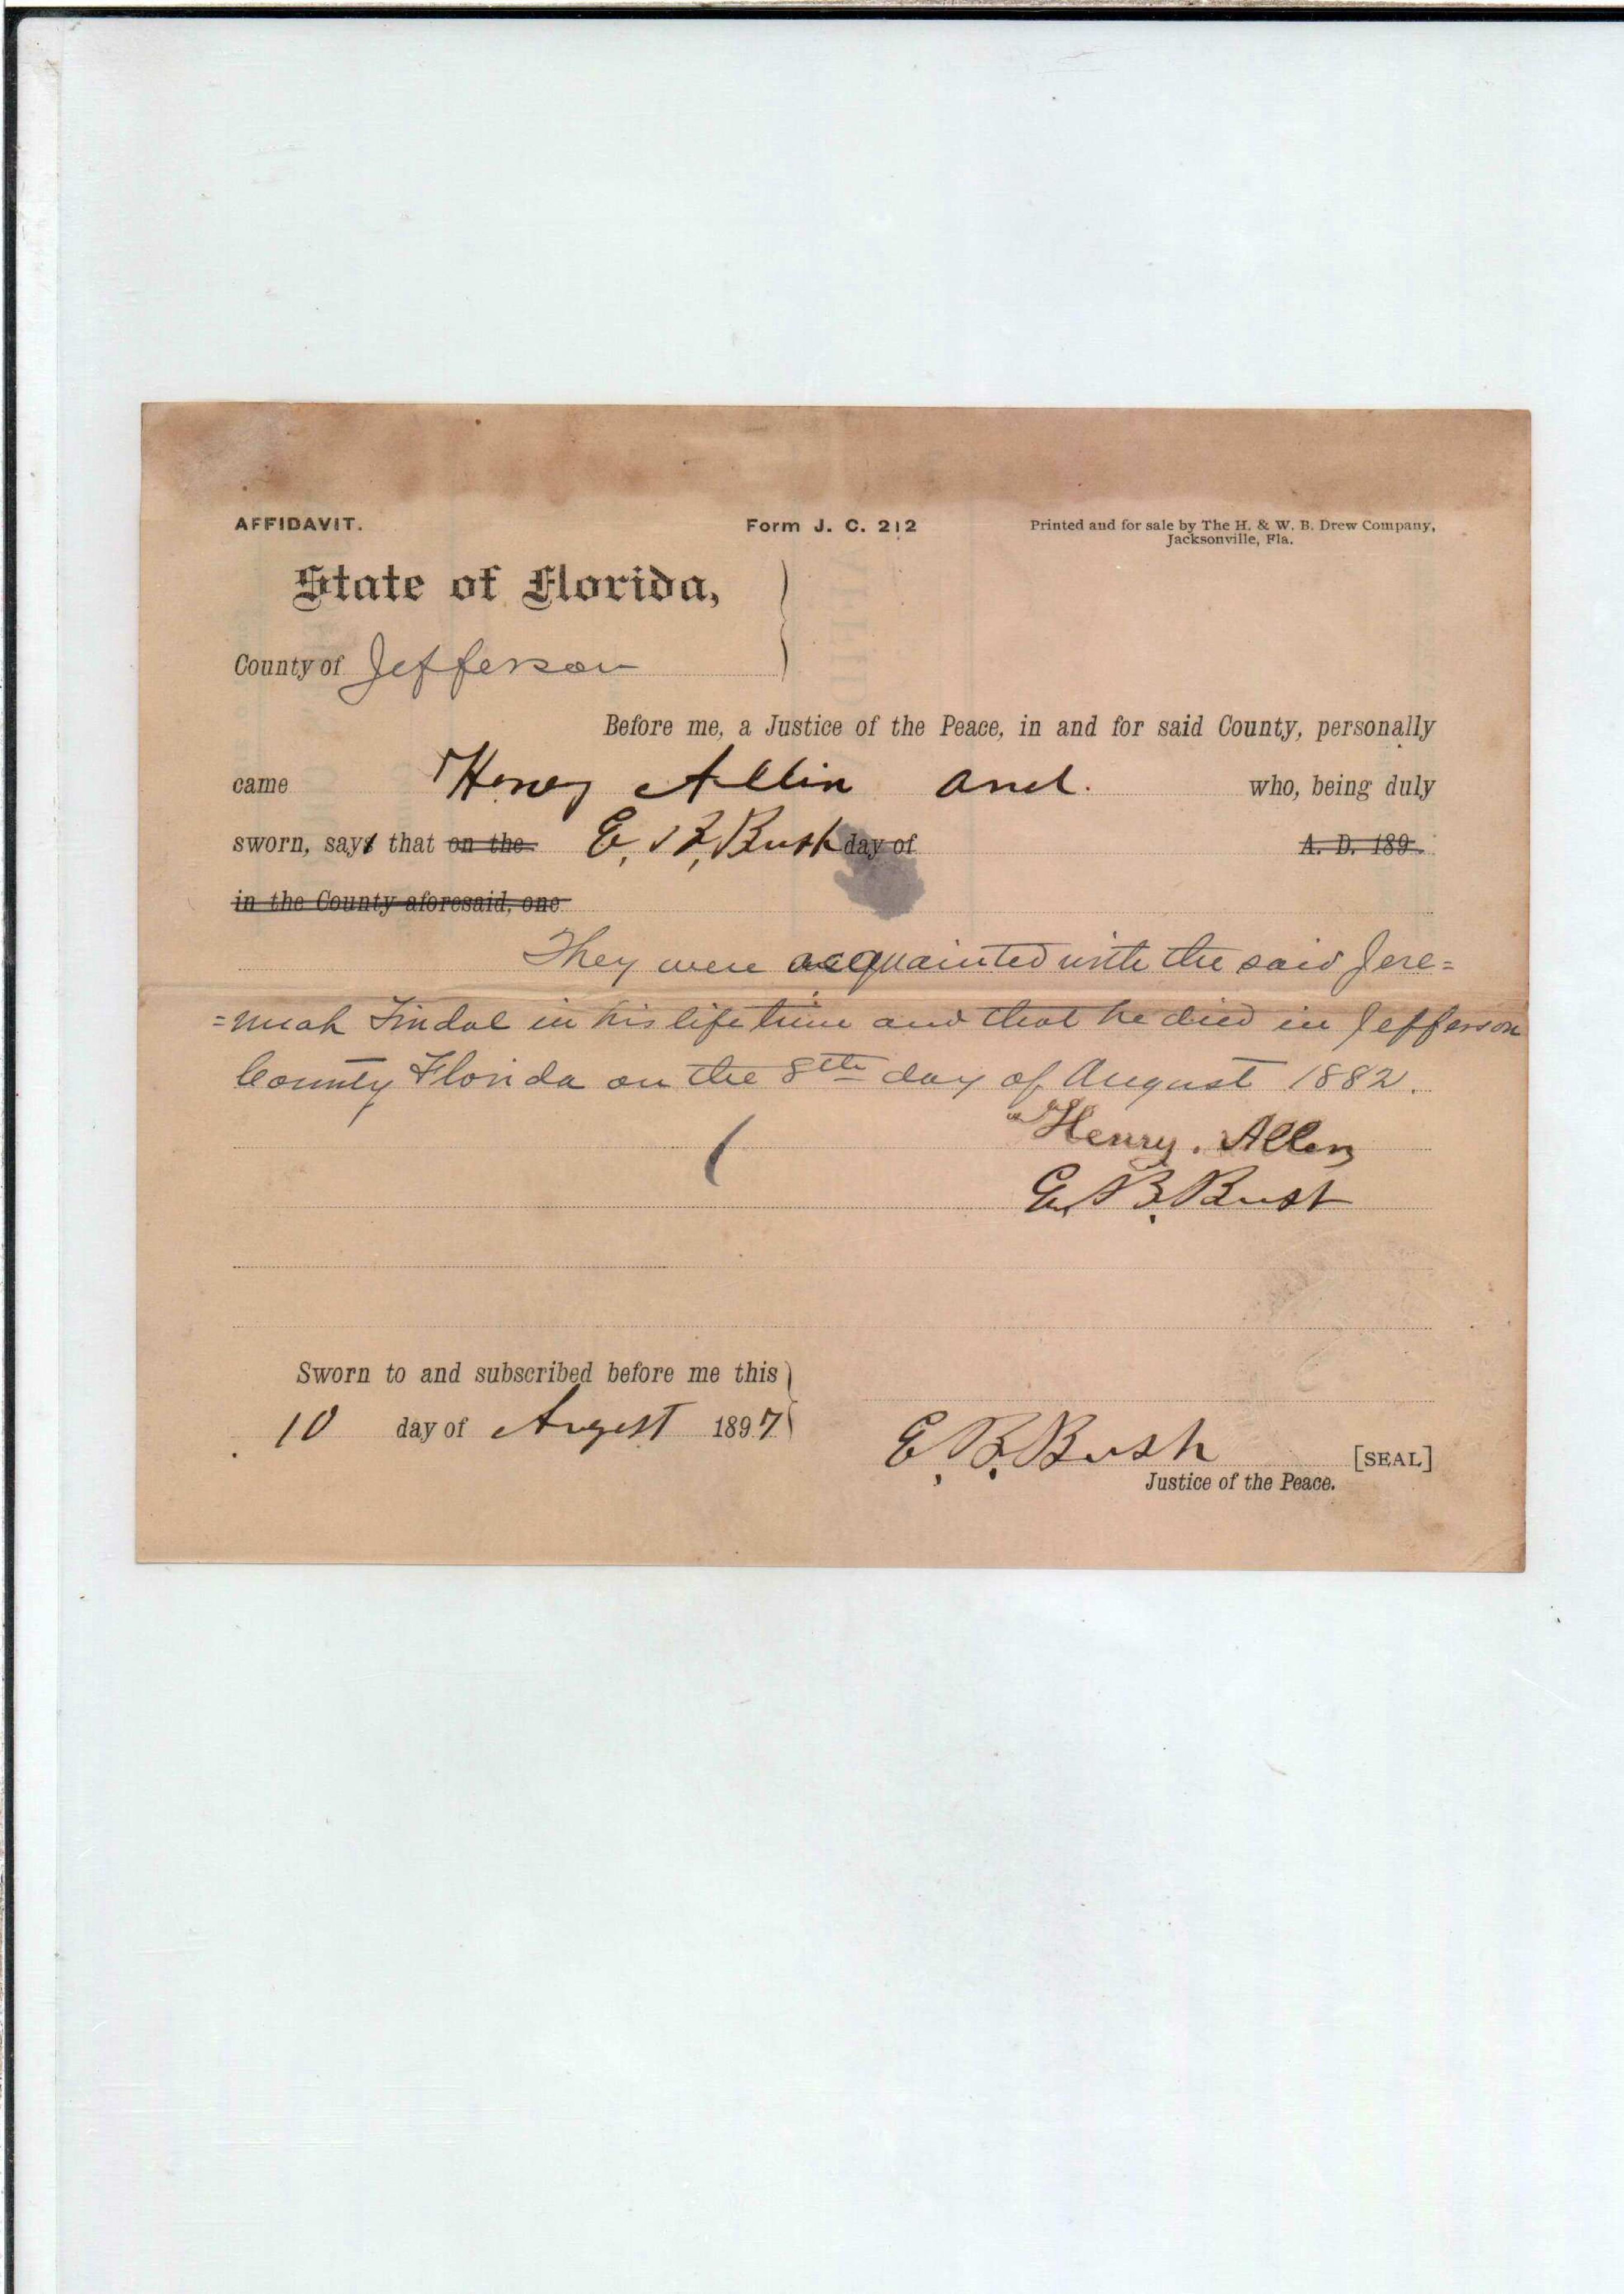 AFFIDAVIT. Form J. C. 212 Printed and for sale by The H. & W. B. Drew Company,
Jacksonville, Fla.
State of Florida,
County of Jefferson
Before me, a Justice of the Peace, in and for said County, personally
came Henry Allin and who, being duly
sworn, says that on the E. B. Bush day of A. D. 189
in the County aforesaid, one
They were acquainted with the said Jere=
=miah Tindal in his life time and that he died in Jefferson
County Florida on the 8th day of August 1882.
Henry. Allen
E. B. Bush
Sworn to and subscribed before me this
10 day of Augest 1897
E. B. Bush [SEAL]
Justice of the Peace.